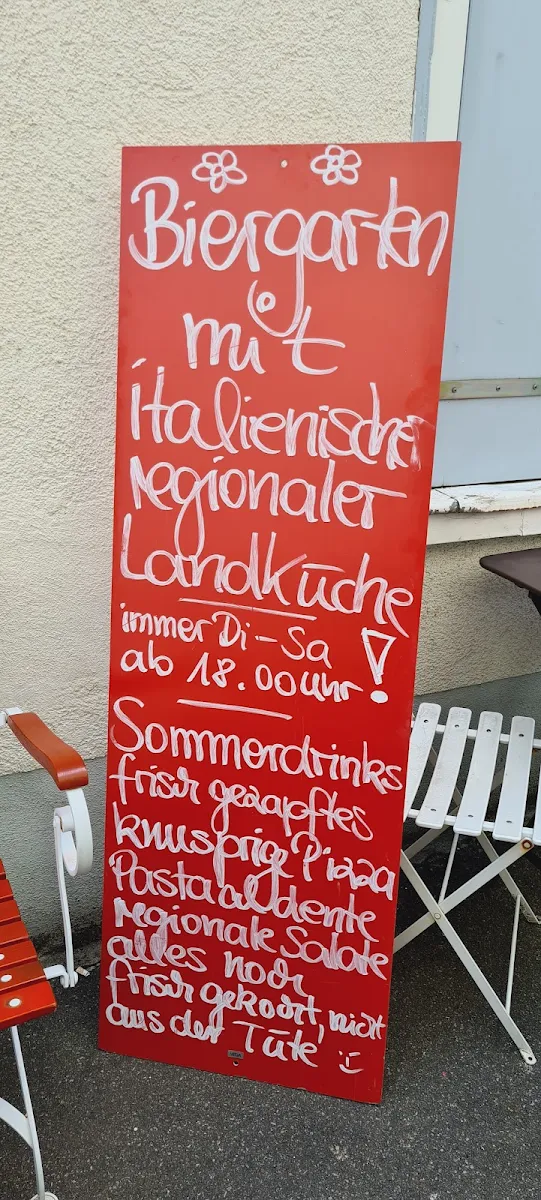 Biergarten
mit
italienischer
regionaler
Landküche
immer Di-Sa
ab 18.00 Uhr!
Sommerdrinks
frisch gezapftes
knusprige Pizza
Pasta al dente
regionale Salate
alles noch
frisch gekocht, nicht
aus der Tüte :-)